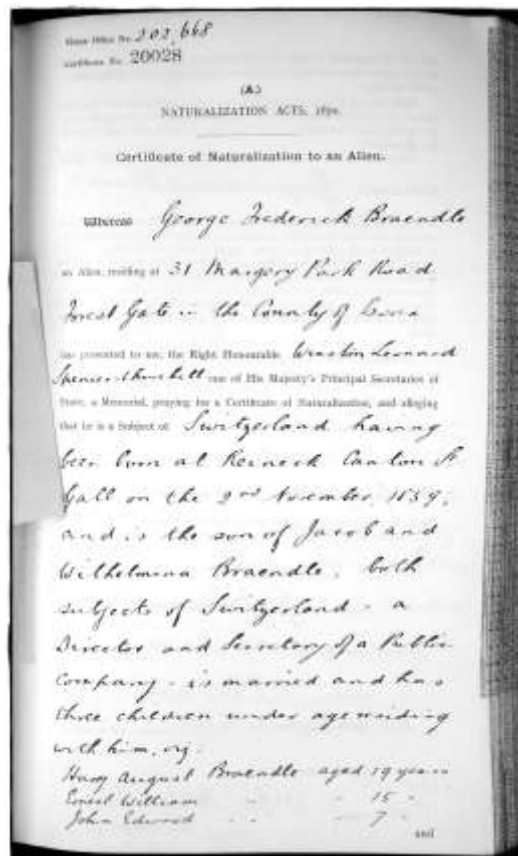 Home Office No. 202,668
Certificate No. 20028
(A.)
NATURALIZATION ACTS, 1870.
Certificate of Naturalization to an Alien.
Whereas George Frederick Braendle
an Alien, residing at 31 Margery Park Road
Forest Gate in the County of Essex
has presented to me, the Right Honourable Winston Leonard
Spencer Churchill one of His Majesty's Principal Secretaries of
State, a Memorial, praying for a Certificate of Naturalization, and alleging
that he is a Subject of Switzerland having
been born at Reineck Canton St
Gall on the 2nd November,
and is the son of Jacob and
Wilhelmina Braendle, both
subjects of Switzerland - a
Director and Secretary of a Public
Company - is married and has
three children under age residing
with him, viz.
Harry August Braendle aged 19 years
Ernest William " - 15 "
John Edward " " - 7 "
and